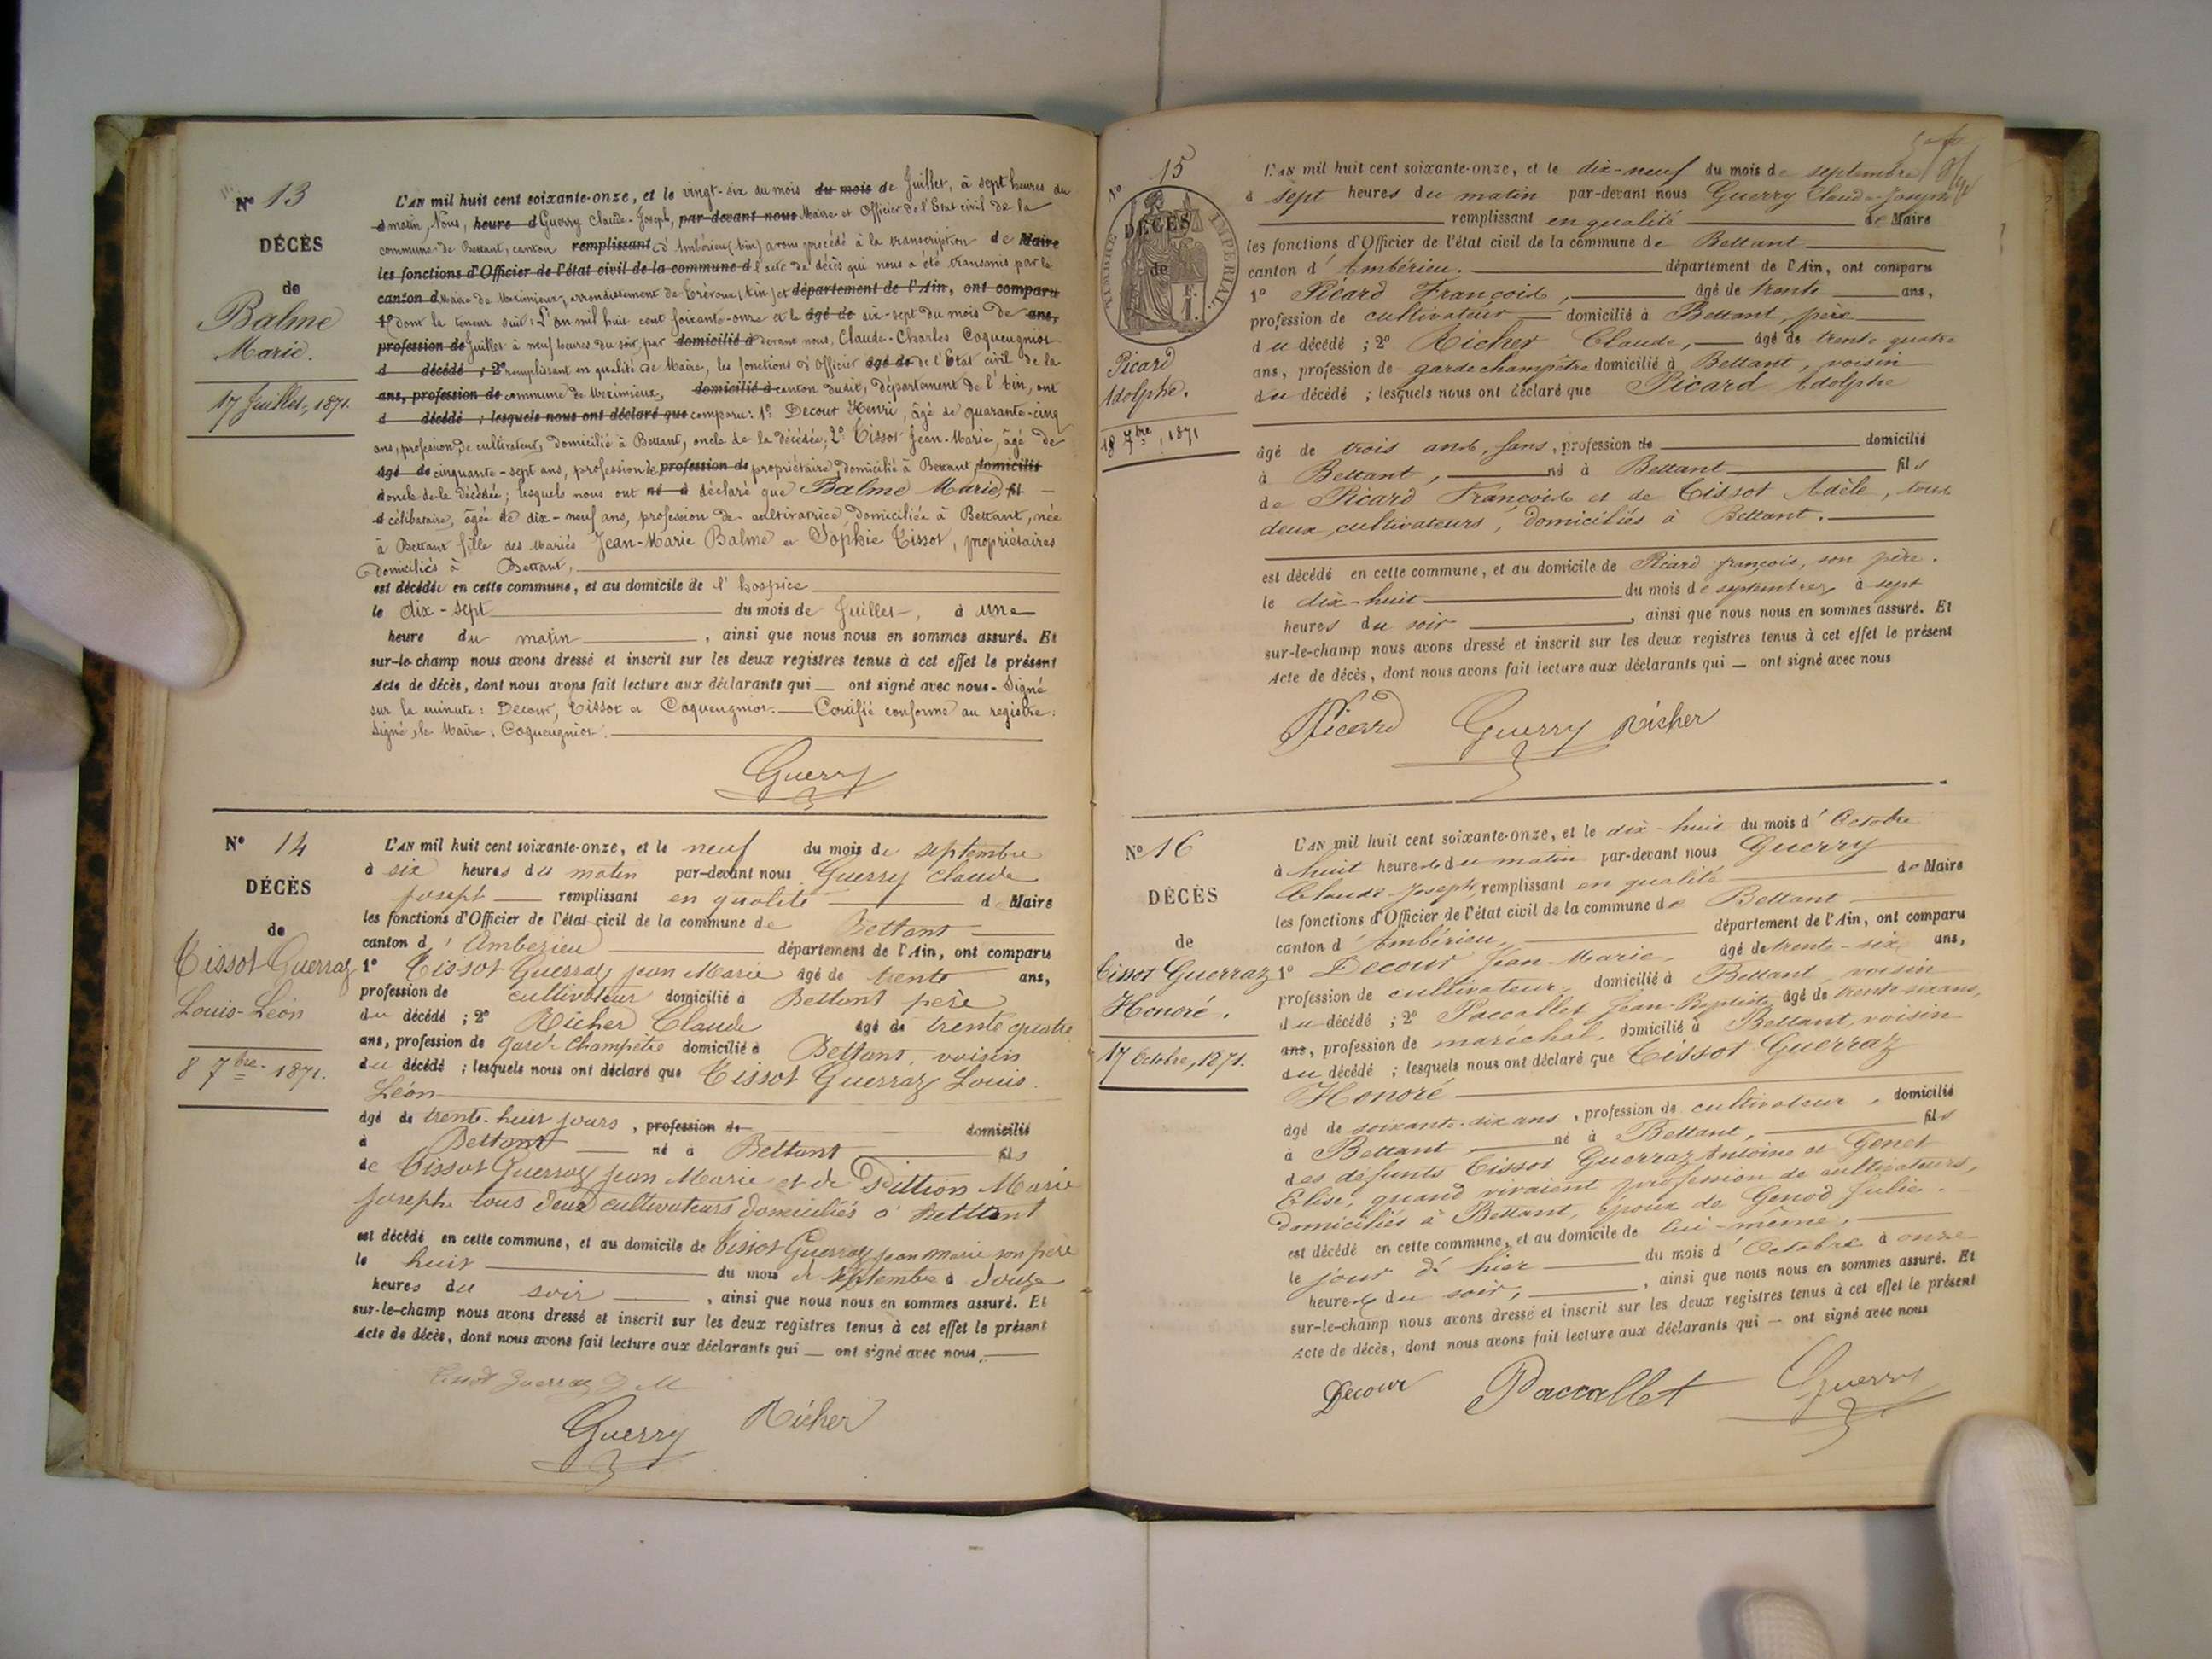 N° 13
DÉCÈS
de
Balme
Marie.
17 Juillet, 1871.
L'AN mil huit cent soixante-onze, et le vingt-six du mois du mois de Juillet, à sept heures du
d matin, Nous, heure d Guerry Claude-Joseph, par-devant nous Maire et Officier de l'Etat civil de la
commune de Bettant, canton remplissant d'Ambérieu (Ain) avons procédé à la transcription de Maire
les fonctions d'Officier de l'état civil de la commune d l'acte de décès qui nous a été transmis par le
canton d Maire de Meximieux, arrondissement de Trévoux (Ain) et département de l'Ain, ont comparu
1° dont la teneur suit: L'an mil huit cent soixante-onze et le âgé de dix-sept du mois de ans,
profession de Juillet à neuf heures du soir, par domicilié à devant nous, Claude-Charles Coqueugniot
d décédé ; 2° remplissant en qualité de Maire, les fonctions d'Officier âgé de de l'Etat civil de la
ans, profession de commune de Meximieux, domicilié à canton dudit, département de l'Ain, ont
d décédé ; lesquels nous ont déclaré que comparu: 1° Decour Henri, âgé de quarante-cinq
ans, profession de cultivateur, domicilié à Bettant, oncle de la décédée; 2° Tissot Jean-Marie, âgé de
âgé de cinquante-sept ans, profession de profession de propriétaire, domicilié à Bettant, domicilié
à oncle de la décédée; lesquels nous ont né à déclaré que Balme Marie, fil
d célibataire, âgée de dix-neuf ans, profession de cultivatrice, domiciliée à Bettant, née
à Bettant fille des mariés Jean-Marie Balme et Sophie Tissot, propriétaires
domiciliés à Bettant,
est décédée en cette commune, et au domicile de l'hospice
le dix-sept du mois de Juillet, à une
heure du matin, ainsi que nous nous en sommes assuré. Et
sur-le-champ nous avons dressé et inscrit sur les deux registres tenus à cet effet le présent
Acte de décès, dont nous avons fait lecture aux déclarants qui — ont signé avec nous. Signé
sur la minute: Decour, Tissot et Coqueugniot. — Certifié conforme au registre.
Signé, le Maire, Coqueugniot.
Guerry
N° 14
DÉCÈS
de
Tissot Guerraz
Louis-Léon
8 7bre 1871.
L'AN mil huit cent soixante-onze, et le neuf du mois de septembre
à six heures du matin par-devant nous Guerry Claude
joseph remplissant en qualité de Maire
les fonctions d'Officier de l'état civil de la commune de Bettant
canton d'Amberieu département de l'Ain, ont comparu
1° Tissot Guerraz jean Marie âgé de trente ans,
profession de cultivateur domicilié à Bettant père
du décédé ; 2° Richer Claude âgé de trente quatre
ans, profession de garde champetre domicilié à Bettant, voisin
du décédé ; lesquels nous ont déclaré que Tissot Guerraz Louis
Léon
âgé de trente-huit jours, profession de domicilié
à Bettant né à Bettant fils
de Tissot Guerraz jean Marie et de Pittion Marie
josephe tous deux cultivateurs domiciliés à Bettant
est décédé en cette commune, et au domicile de Tissot Guerraz jean marie son père
le huit du mois de septembre à douze
heures du soir, ainsi que nous nous en sommes assuré. Et
sur-le-champ nous avons dressé et inscrit sur les deux registres tenus à cet effet le présent
Acte de décès, dont nous avons fait lecture aux déclarants qui — ont signé avec nous.
Tissot Guerraz J M
Guerry Richer
N° 15
TIMBRE IMPERIAL
DÉCÈS
de
Picard
Adolphe.
18 7bre, 1871
L'AN mil huit cent soixante-onze, et le dix-neuf du mois de septembre
à sept heures du matin par-devant nous Guerry Claude-Joseph
remplissant en qualité de Maire
les fonctions d'Officier de l'état civil de la commune de Bettant
canton d'Ambérieu. département de l'Ain, ont comparu
1° Picard François, âgé de trente ans,
profession de cultivateur domicilié à Bettant, père
du décédé ; 2° Richer Claude, âgé de trente-quatre
ans, profession de garde champêtre domicilié à Bettant, voisin
du décédé ; lesquels nous ont déclaré que Picard Adolphe
âgé de trois ans, sans, profession de domicilié
à Bettant, né à Bettant fils
de Picard François et de Tissot Adèle, tous
deux cultivateurs, domiciliés à Bettant.
est décédé en cette commune, et au domicile de Picard françois, son père.
le dix-huit du mois de septembre, à sept
heures du soir, ainsi que nous nous en sommes assuré. Et
sur-le-champ nous avons dressé et inscrit sur les deux registres tenus à cet effet le présent
Acte de décès, dont nous avons fait lecture aux déclarants qui — ont signé avec nous
Picard Guerry Richer
N° 16
DÉCÈS
de
Tissot Guerraz
Honoré.
17 Octobre, 1871.
L'AN mil huit cent soixante-onze, et le dix-huit du mois d'Octobre
à huit heures du matin par-devant nous Guerry
Claude Joseph, remplissant en qualité de Maire
les fonctions d'Officier de l'état civil de la commune de Bettant
canton d'Ambérieu, département de l'Ain, ont comparu
1° Decour Jean-Marie, âgé de trente-six ans,
profession de cultivateur, domicilié à Bettant, voisin
du décédé ; 2° Paccallet Jean-Baptiste, âgé de trente-six ans,
ans, profession de maréchal, domicilié à Bettant, voisin
du décédé ; lesquels nous ont déclaré que Tissot Guerraz
Honoré
âgé de soixante-dix ans, profession de cultivateur, domicilié
à Bettant né à Bettant, fils
des défunts Tissot Guerraz Antoine et Genet
Elise, quand vivaient profession de cultivateurs,
domiciliés à Bettant, époux de Genod Julie.
est décédé en cette commune, et au domicile de lui-même,
le jour d'hier du mois d'Octobre à onze
heures du soir, ainsi que nous nous en sommes assuré. Et
sur-le-champ nous avons dressé et inscrit sur les deux registres tenus à cet effet le présent
Acte de décès, dont nous avons fait lecture aux déclarants qui — ont signé avec nous
Decour Paccallet Guerry